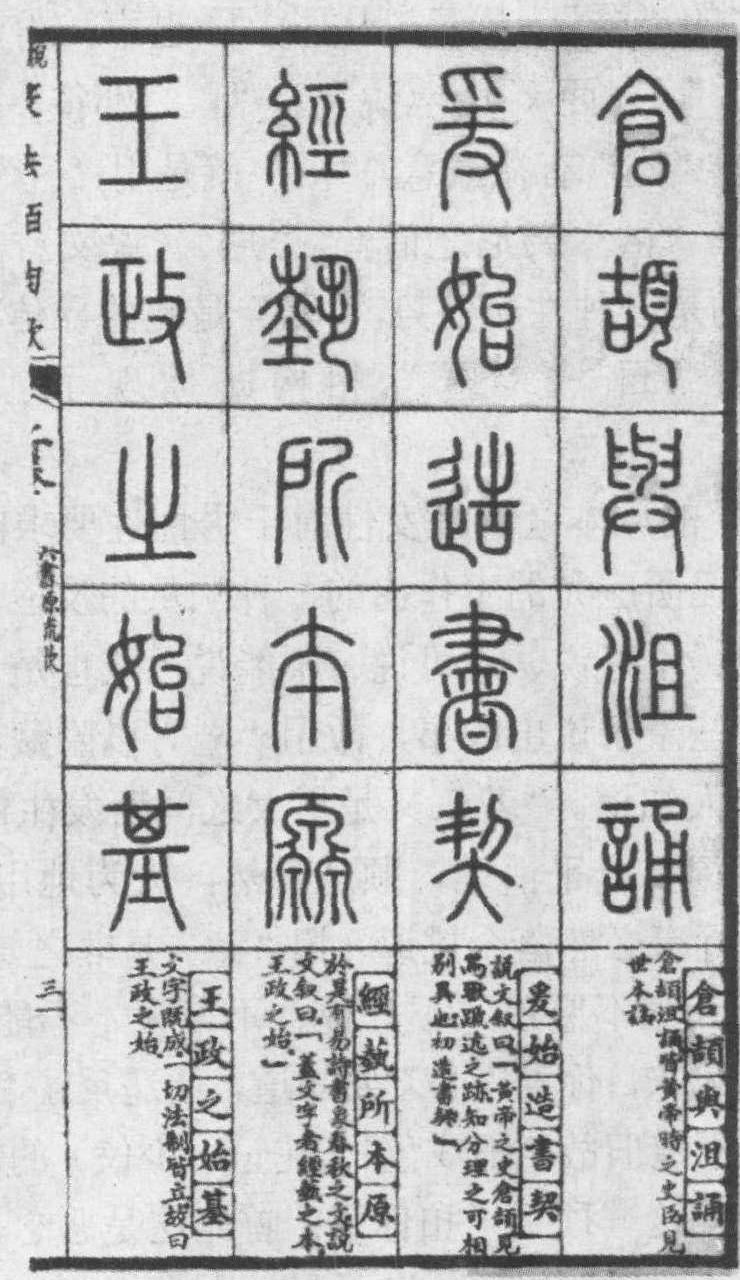 倉頡與沮誦
倉頡與沮誦
倉頡沮誦皆黃帝時之史臣見
世本
爰始造書契
爰始造書契
說文叙曰「黃帝之史倉頡見
鳥獸蹏迒之跡知分理之可相
別異也初造書契」
經蓺所本原
經蓺所本原
於是有易詩書象春秋之文說
文叙曰「蓋文字者經蓺之本
王政之始」
王政之始基
王政之始基
文字既成一切法制皆立故曰
王政之始
六書源流歌
三